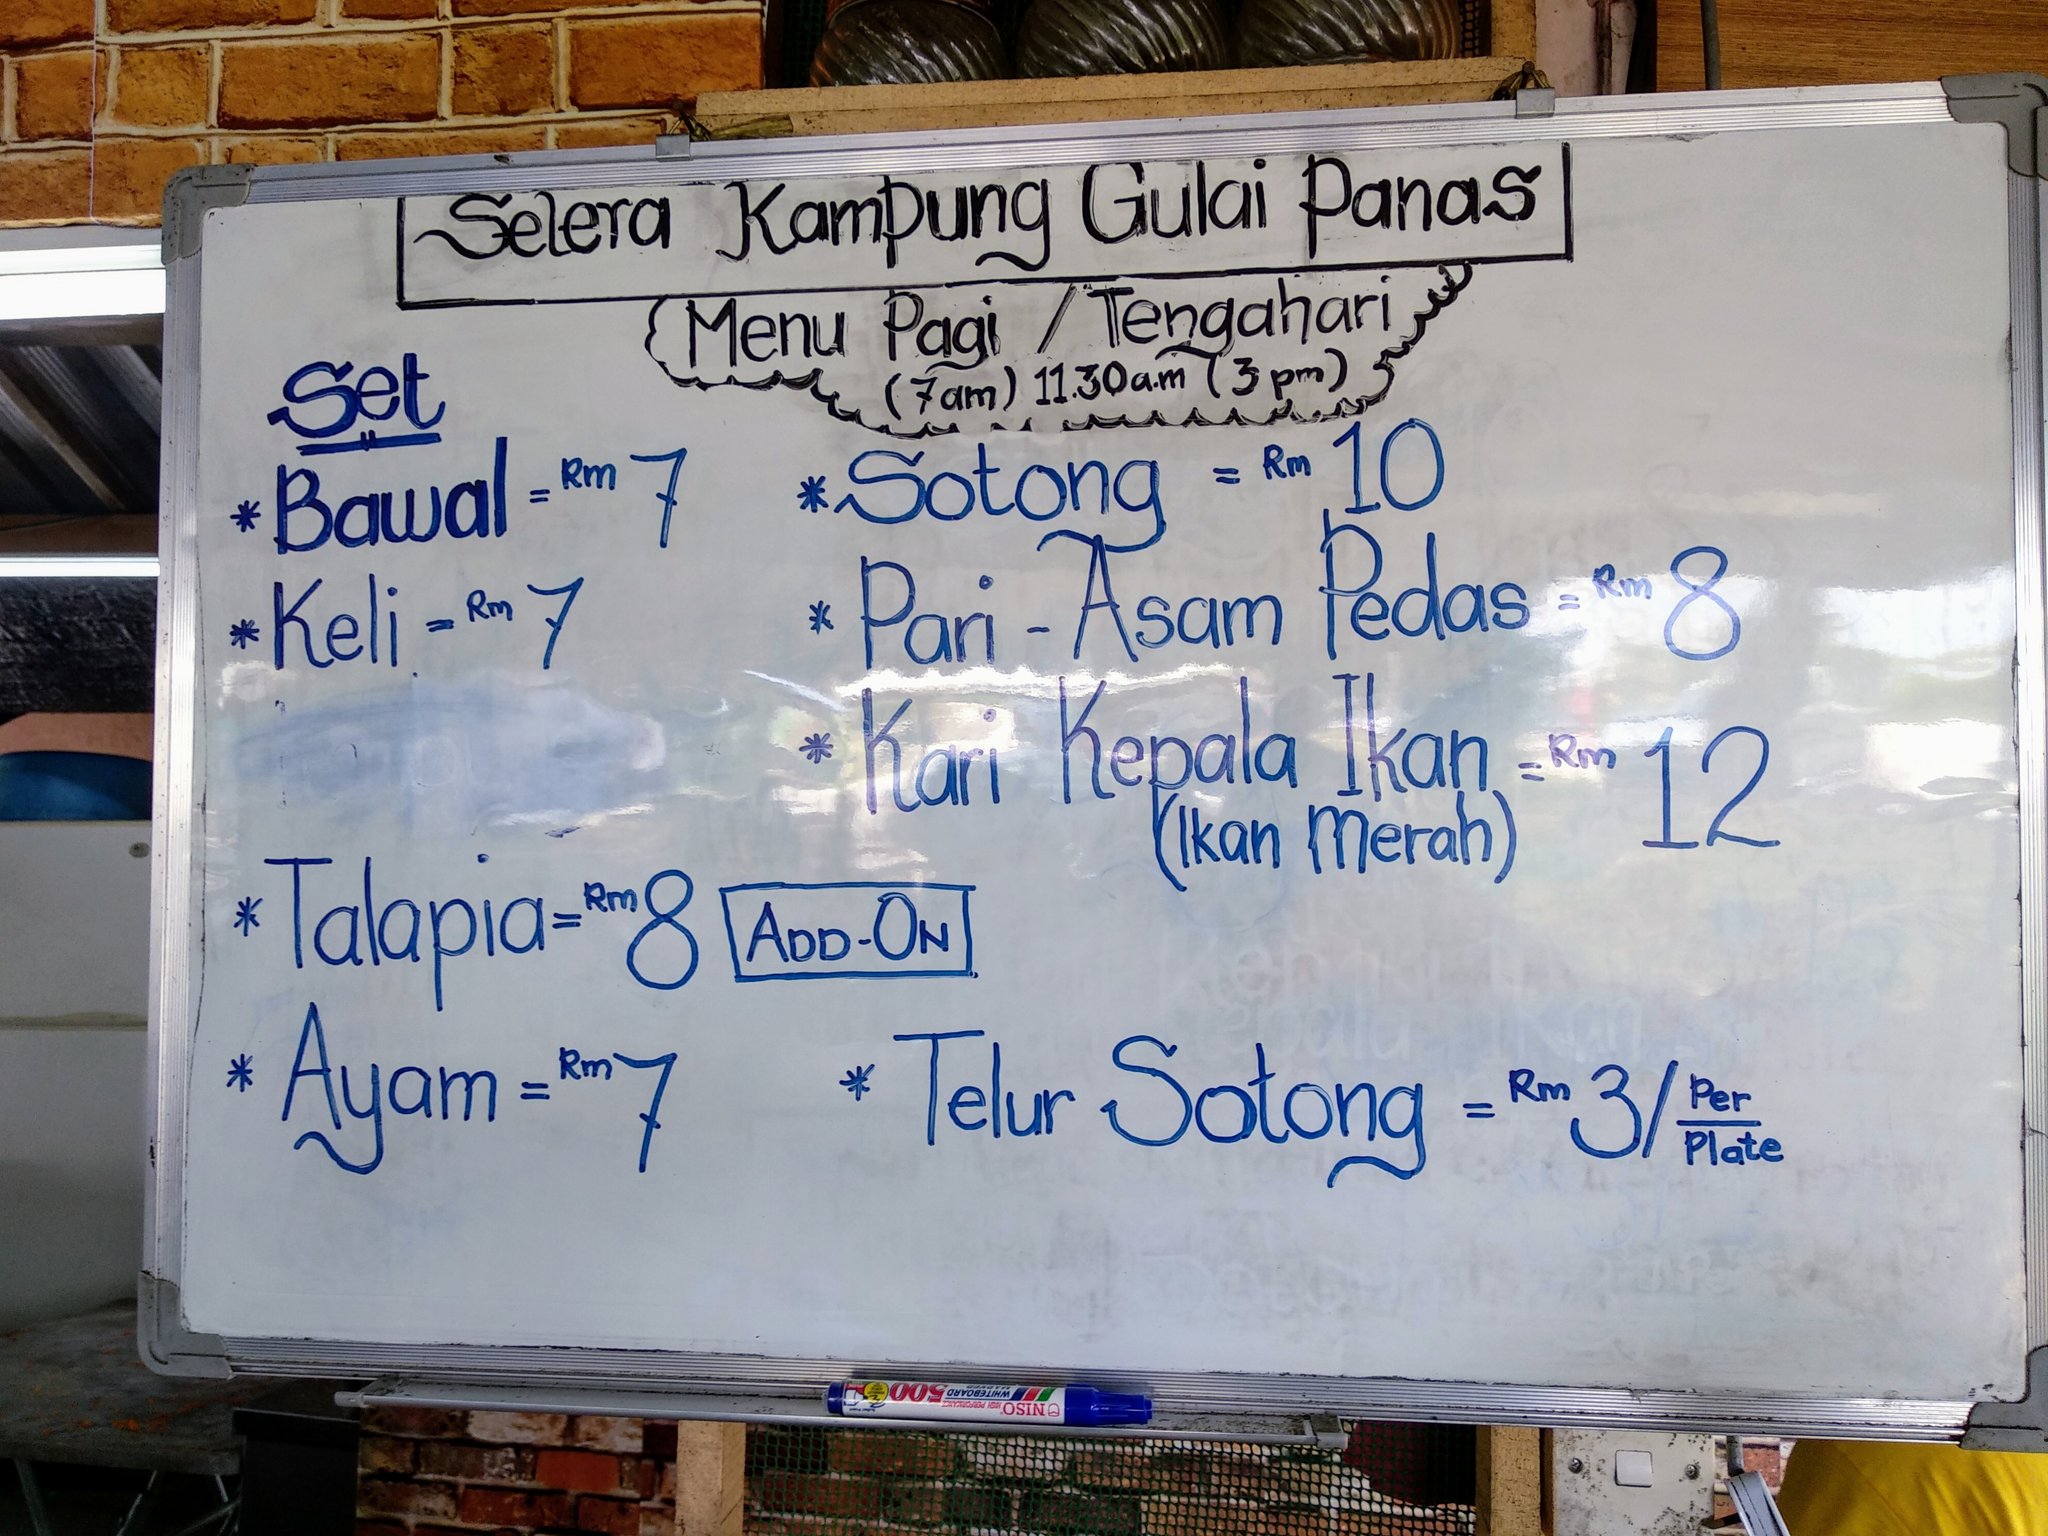 Selera Kampung Gulai Panas
Menu Pagi / Tengahari
(7am) 11.30a.m (3pm)
Set
* Bawal = Rm 7
* Keli = Rm 7
* Talapia = Rm 8
* Ayam = Rm 7
* Sotong = Rm 10
* Pari - Asam Pedas = Rm 8
* Kari Kepala Ikan = Rm 12
(Ikan Merah)
ADD-ON
* Telur Sotong = Rm 3/ Per
Plate
NISO 500
HIGH PERFORMANCE
WHITEBOARD
MARKER